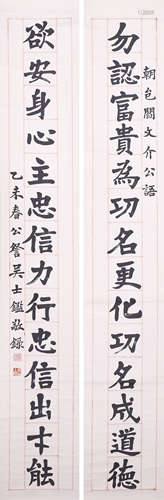 朝邑關文介公語
勿認富貴為功名更化功名成道德
欲安身心主忠信力行忠信出才能
乙未春公詧吳士鑑敬錄